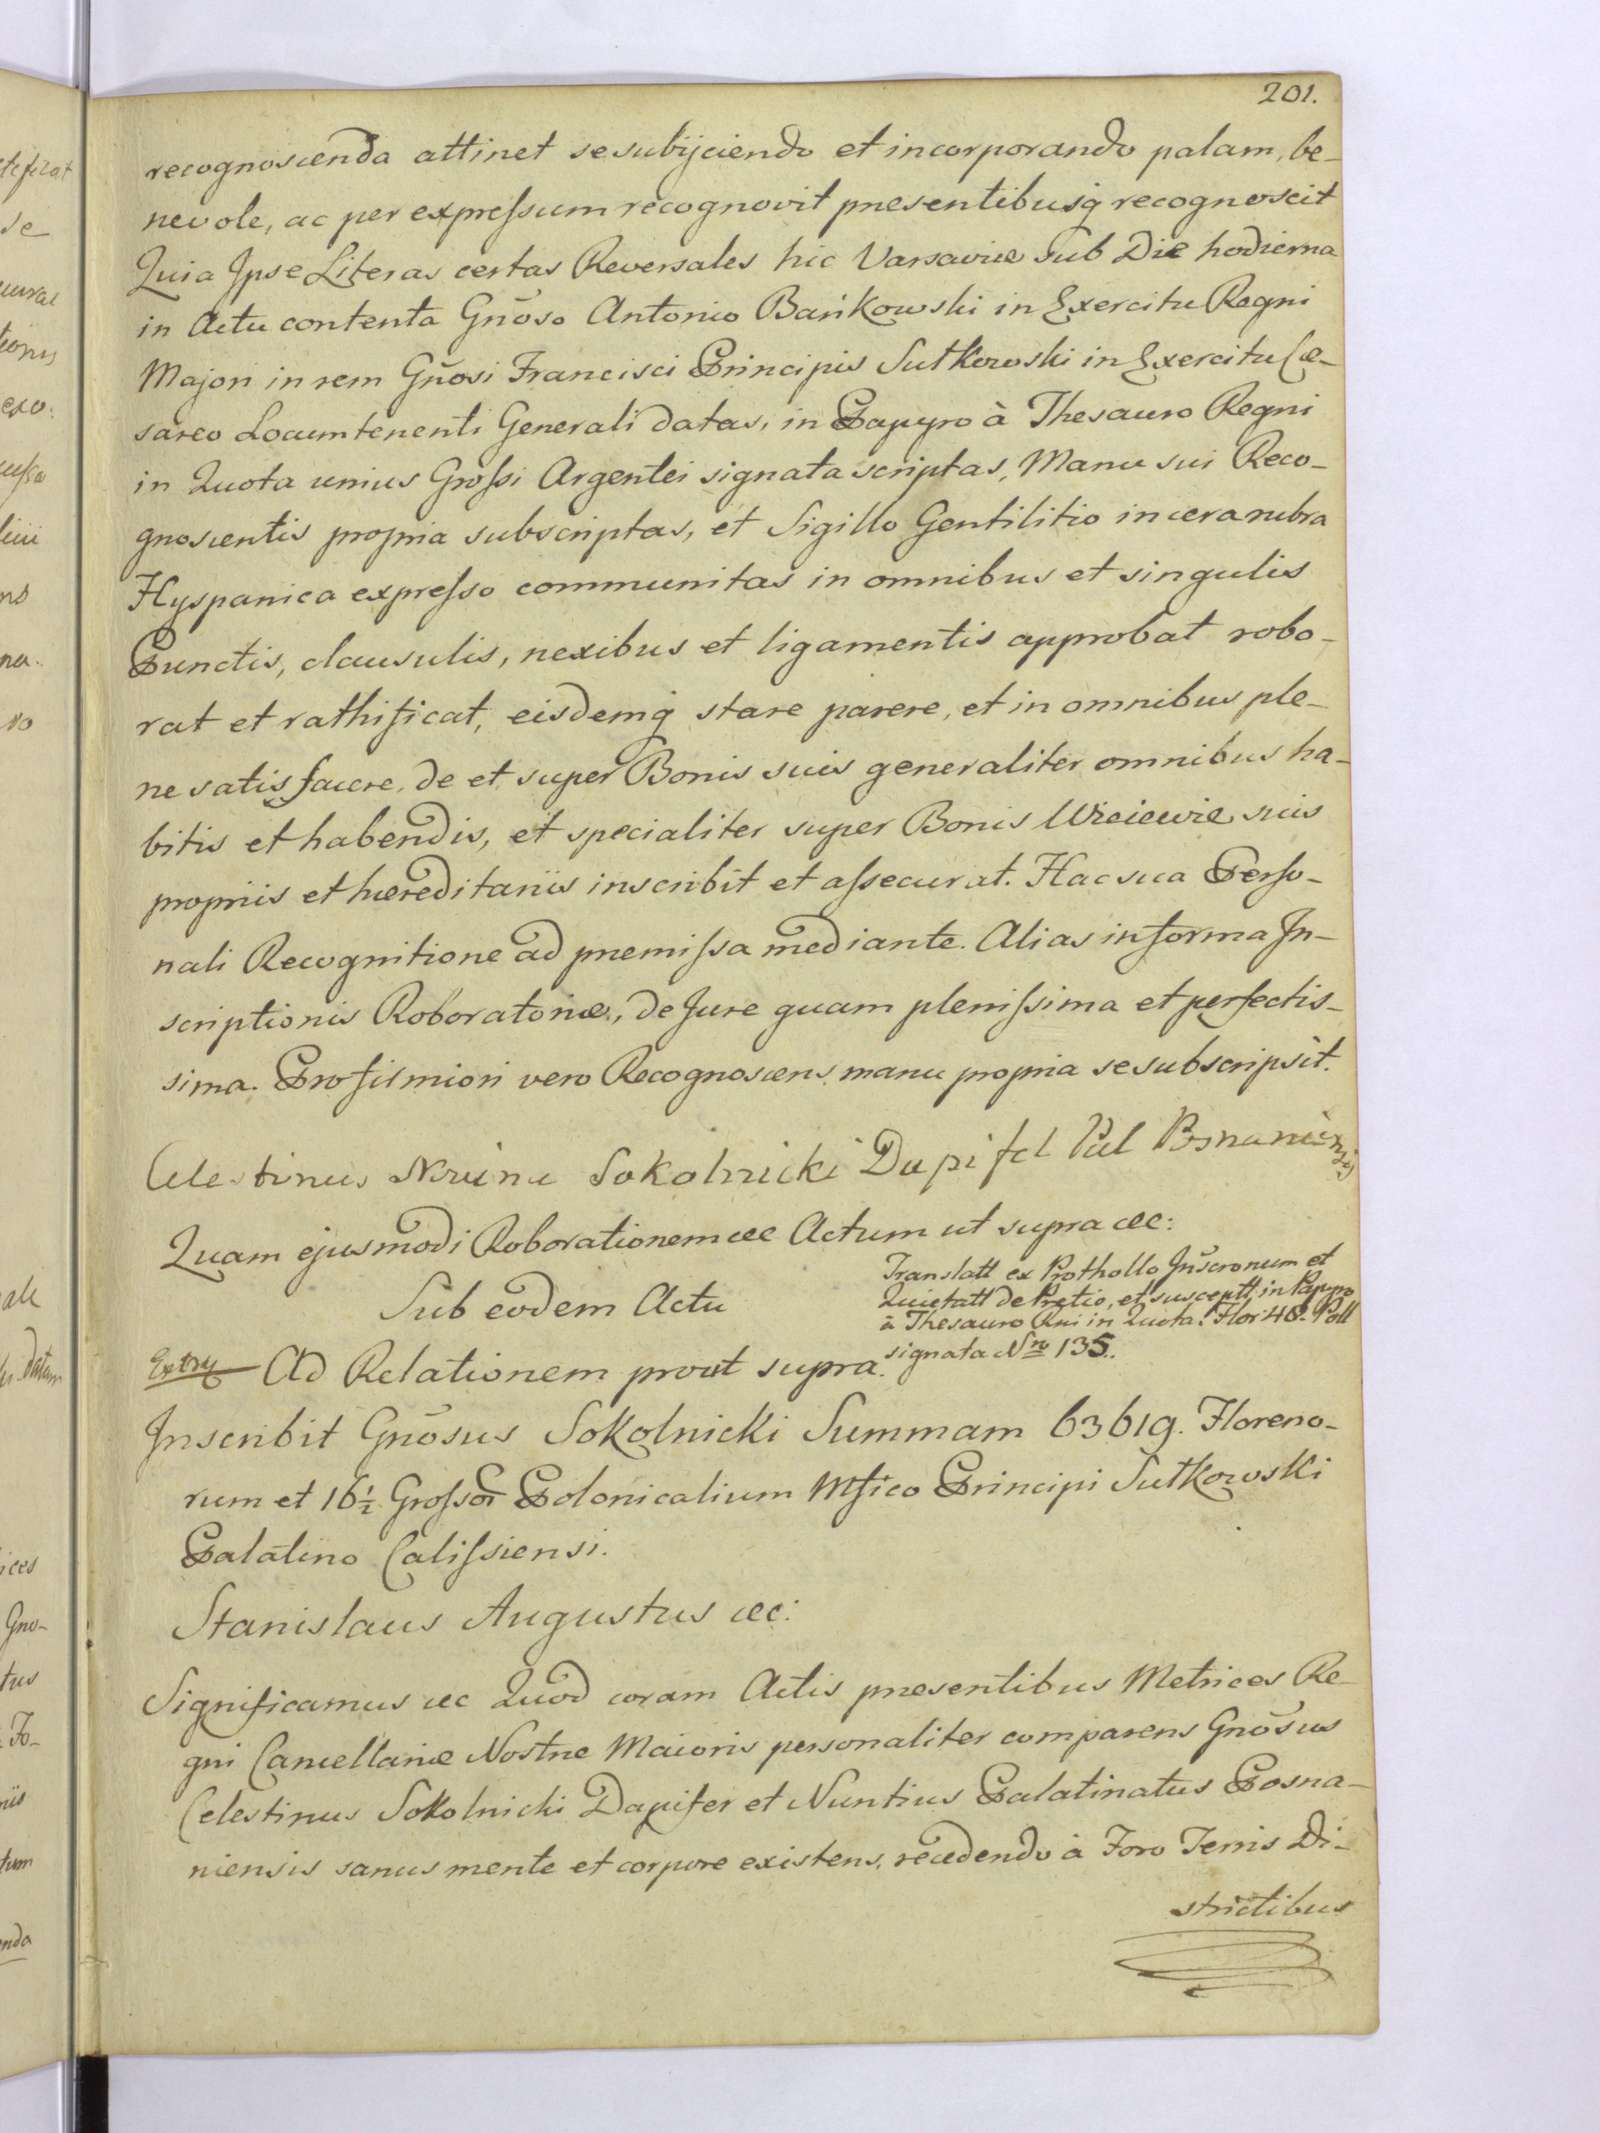 201.
recognoscenda attinet se subijciendo et incorporando palam, be-
nevole, ac per expreſsum recognovit presentibusq recognoscit
Quia Ipse Literas certas Reversales hic Varsaviæ sub Die hodierna
in Actu contenta Gnõso Antonio Bańkowski in Exercitu Regni
Majori in rem Gnõsi Francisci Principis Sułkowski in Exercitu Cæ-
sareo Locumtenenti Generali datas, in Papyro à Thesauro Regni
in Quota unius Groſsi Argentei signata scriptas, Manu sui Reco-
gnoscentis propria subscriptas, et Sigillo Gentilitio in cera rubra
Hyspanica expreſso communitas in omnibus et singulis
Punctis, clausulis, nexibus et ligamentis approbat robo-
rat et rathificat, eisdemq stare parere, et in omnibus ple-
ne satisfacere, de et super Bonis suis generaliter omnibus ha-
bitis et habendis, et specialiter super Bonis Wrciewie suis
propriis et hæreditariis inscribit et aſsecurat. Hac sua Perso-
nali Recognitione ad premiſsa mediante. Alias in forma In-
scriptionis Roboratoriæ, de Jure quam pleniſsima et perfectis-
sima. Pro firmiori vero Recognoscens manu propria se subscripsit.
Celestinus Sokolnicki Dapifer Pal Posnaniensis
Quam ejusmodi Roborationem &c Actum ut supra &c:
Sub eodem Actu
Translatt ex Prothollo Inscronum et
Quietatt de Pretio, et suscept in Papyro
à Thesauro Rni in Quota Flor 40. Poll
signata Nro 135.
Extry Ad Relationem prout supra.
Inscribit Gnõsus Sokolnicki Summam 63619. Floreno-
rum et 16½ Groſsor Polonicalium Mfico Principi Sułkowski
Palatino Caliſsiensi.
Stanislaus Augustus &c:
Significamus &c Quod coram Actis presentibus Metrices Re-
gni Cancellariæ Nostræ Maioris personaliter comparens Gnõsus
Celestinus Sokolnicki Dapifer et Nuntius Palatinatus Posna-
niensis sanus mente et corpore existens, recedendo à Foro Terris Di-
strictibus